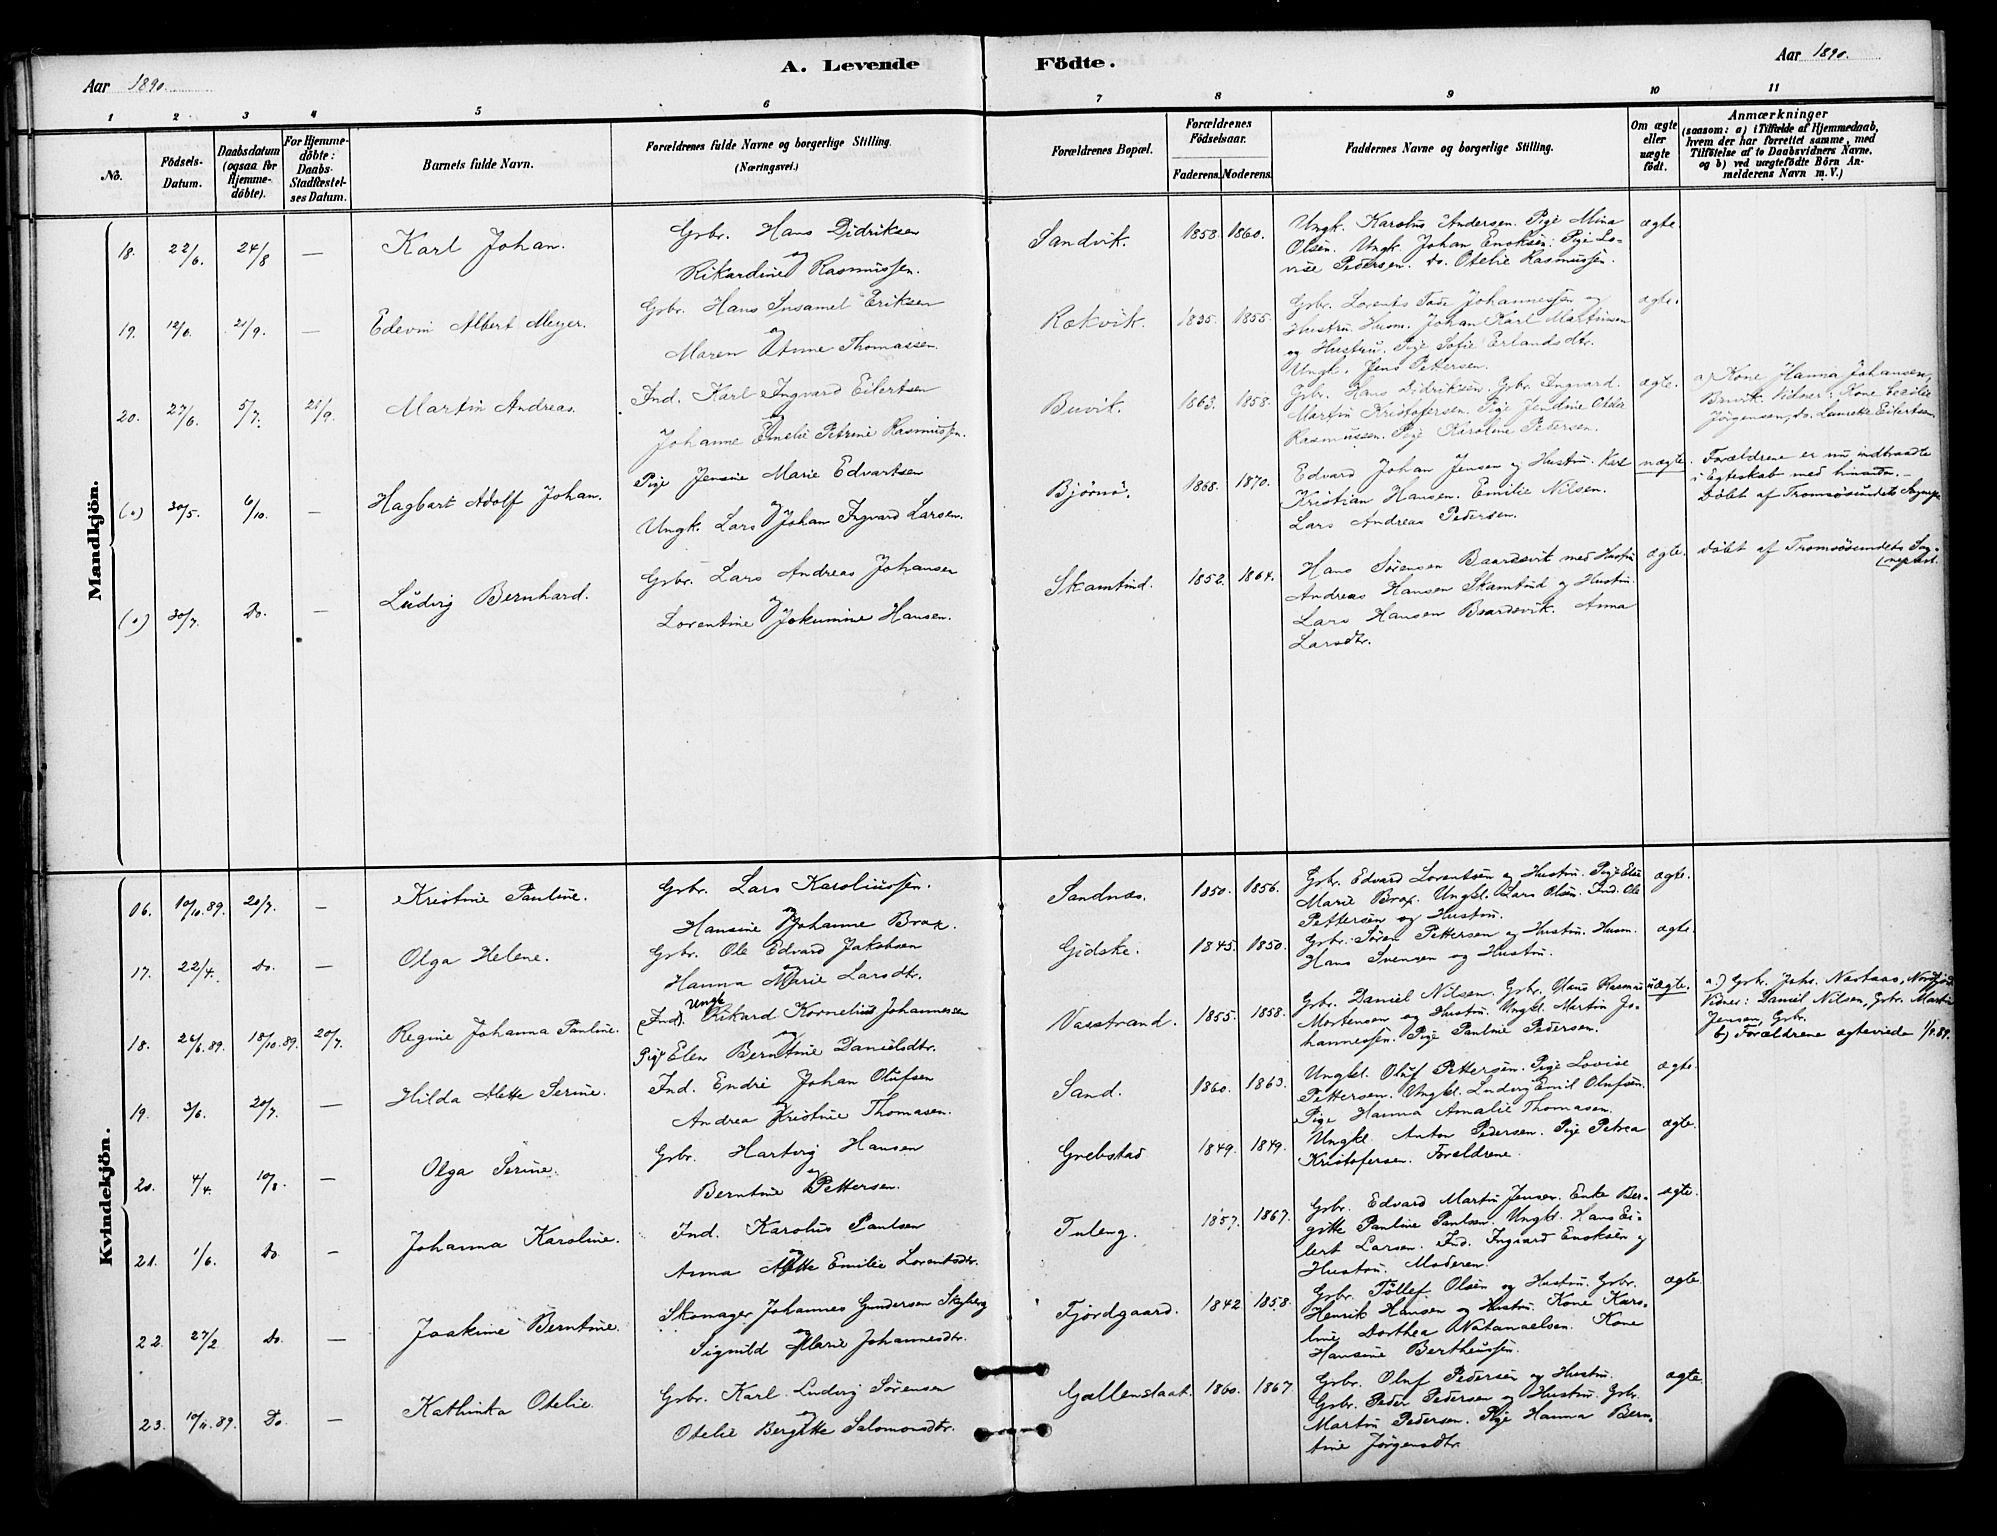 Aar 1890.
A. Levende Födte.
Aar 1890.
1 2 3 4 5 6 7 8 9 10 11
No.
Födsels-Datum.
Daabsdatum (ogsaa for Hjemmedöbte).
For Hjemmedöbte: Daabs-Stadfæstelses Datum.
Barnets fulde Navn.
Forældrenes fulde Navne og borgerlige Stilling.
(Næringsvei.)
Forældrenes Bopæl.
Forældrenes Födselsaar.
Faderens. Moderens.
Faddernes Navne og borgerlige Stilling.
Om ægte eller uægte födt.
Anmærkninger
(saasom: a) i Tilfælde af Hjemmedaab,
hvem der har forrettet samme, med
Tilföielse af to Daabsvidners Navne,
og b) ved uægtefödte Börn Anmelderens Navn m. V.)
Mandkjön.
18. 22/6. 24/8 — Karl Johan. Grbr. Hans Didriksen
og
Rikardine Rasmussen. Sandvik. 1858. 1860. Ungk. Karolus Andersen. Pige Mina
Olsen. Ungk. Johan Enoksen. Pige Lo-
vise Pedersen. do. Otelie Rasmussen. ægte.
19. 12/6. 21/9. — Edevin Albert Meyer. Grbr. Hans Eriksen
og
Maren Anne Thomassen. Rækvik. 1835. 1855. Grbr. Lorents Johannessen og
Hustru. Husm. Johan Karl Martinsen
og Hustru. Pige Sofie Erlandsdtr.
Ungk. Jens Pettersen. ægte.
20. 27/6. 5/7. 21/9. Martin Andreas. Ind. Karl Ingvard Eilertsen
og
Johanne Emelie Petrine Rasmussen. Buvik. 1863. 1858. Grbr. Hans Didriksen. Grbr. Ingvard.
Martin Kristofersen. Pige Jendine Otelie
Rasmussen. Pige Karoline Petersen. ægte. a) Kone Hanna Johansen,
Buvik. Vidner: Kone
Jørgensen, do. Laurette Eilertsen.
(a) 30/5. 6/10. — Hagbart Adolf Johan. Pige Jensine Marie Edvartsen
og
Ungk. Lars Johan Ingvard Larsen. Bjørnø. 1868. 1870. Edvard Johan Jensen og Hustru. Karl
Kristian Hansen. Emilie Nilsen.
Lars Andreas Pedersen. uægte. Forældrene er nu indtraadte
i Egteskab med hinanden. —
Døbt af Tromsøsundets Sognepr.
(a) 30/7. Do. — Ludvig Bernhard. Grbr. Lars Andreas Johansen
og
Lorentine Jokumine Hansen. Skamtind. 1852. 1864. Hans Sørensen Baardsvik med Hustru
Andreas Hansen Skamtind og Hustru.
Lars Hansen Baardsvik. Anna
Larsdtr. ægte. Døbt af Tromsøsundets Sog-
neprest.
Kvindekjön.
06. 10/10. 89. 20/7. — Kristine Pauline. Grbr. Lars Karoliussen.
og
Hansine Johanne Brox. Sandnæs. 1850. 1856. Grbr. Edvard Lorentsen og Hustru. Pige Elen
Marie Brox. Ungkl. Lars Olsen. Ind. Ole
Pettersen og Hustru. ægte.
17. 22/4. Do. — Olga Helene. Grbr. Ole Edvard Jakobsen
og
Hanna Marie Larsdtr. Gidske. 1845. 1850. Grbr. Søren Pettersen og Hustru. Husm.
Hans Svensen og Hustru. ægte.
18. 26/6. 89. 18/10. 89. 20/7. Regine Johanna Pauline. (Ind). Ungk. Rikard Kornelius Johannessen
og
Pige Elen Berntine Danielsdtr. Vasstrand. 1855. 1858. Grbr. Daniel Nilsen. Grbr. Hans Rasmus
Mortensen og Hustru. Ungkl. Martin Jo-
hannessen. Pige Pauline Pedersen. uægte. a.) Grbr. Johs. Nastaas,
Vidner: Daniel Nilsen, Grbr. Martin
Jensen, Grbr.
b) Forældrene ægteviede
19. 3/6. 20/7. — Hilda Mette Serine. Ind. Endre Johan Olufsen
og
Andrea Kristine Thomasen. Sand. 1860. 1863. Ungkl. Oluf Pettersen. Pige Lovise
Pettersen. Ungkl. Ludvig Emil Olufsen.
Pige Hanna Amalie Thomasen. ægte.
20. 4/4. 10/8. — Olga Serine. Grbr. Hartvig Hansen
og
Berntine Pettersen. Grebstad 1849. 1849. Ungkl. Anton Pedersen. Pige Petrea
Kristofersen. Forældrene. ægte.
21. 1/6. Do — Johanna Karoline. Ind. Karolus Paulsen
og
Anna Mette Emilie Lorentsdtr. Tuleng. 1857. 1867. Grbr. Edvard Martin Jensen. Enke Ber-
gitte Pauline Paulsen. Ungkl. Hans Ei-
lert Larsen. Ind. Ingvard Enoksen og
Hustru. Moderen. ægte.
22. 27/2 Do — Joakime Berntine. Skomager Johannes Gundersen Skyberg
og
Signild Marie Johannesdtr. Fjordgaard. 1842 1858. Grbr. Tollef Olsen og Hustru. Grbr.
Henrik Hansen og Hustru. Kone Karo-
line Dorthea Natanaelsen. Kone
Hansine Bertheussen. ægte.
23. 10/11. 89. Do — Kathinka Otelie. Grbr. Karl Ludvig Sørensen
og
Otelie Bergitte Salomonsdtr. Gallenslaat. 1860. 1867 Grbr. Oluf Pedersen og Hustru.
Grbr. Peder Pedersen og Hustru. Grbr.
Martin Pedersen. Pige Hanna Bern-
tine Jørgensdtr. ægte.